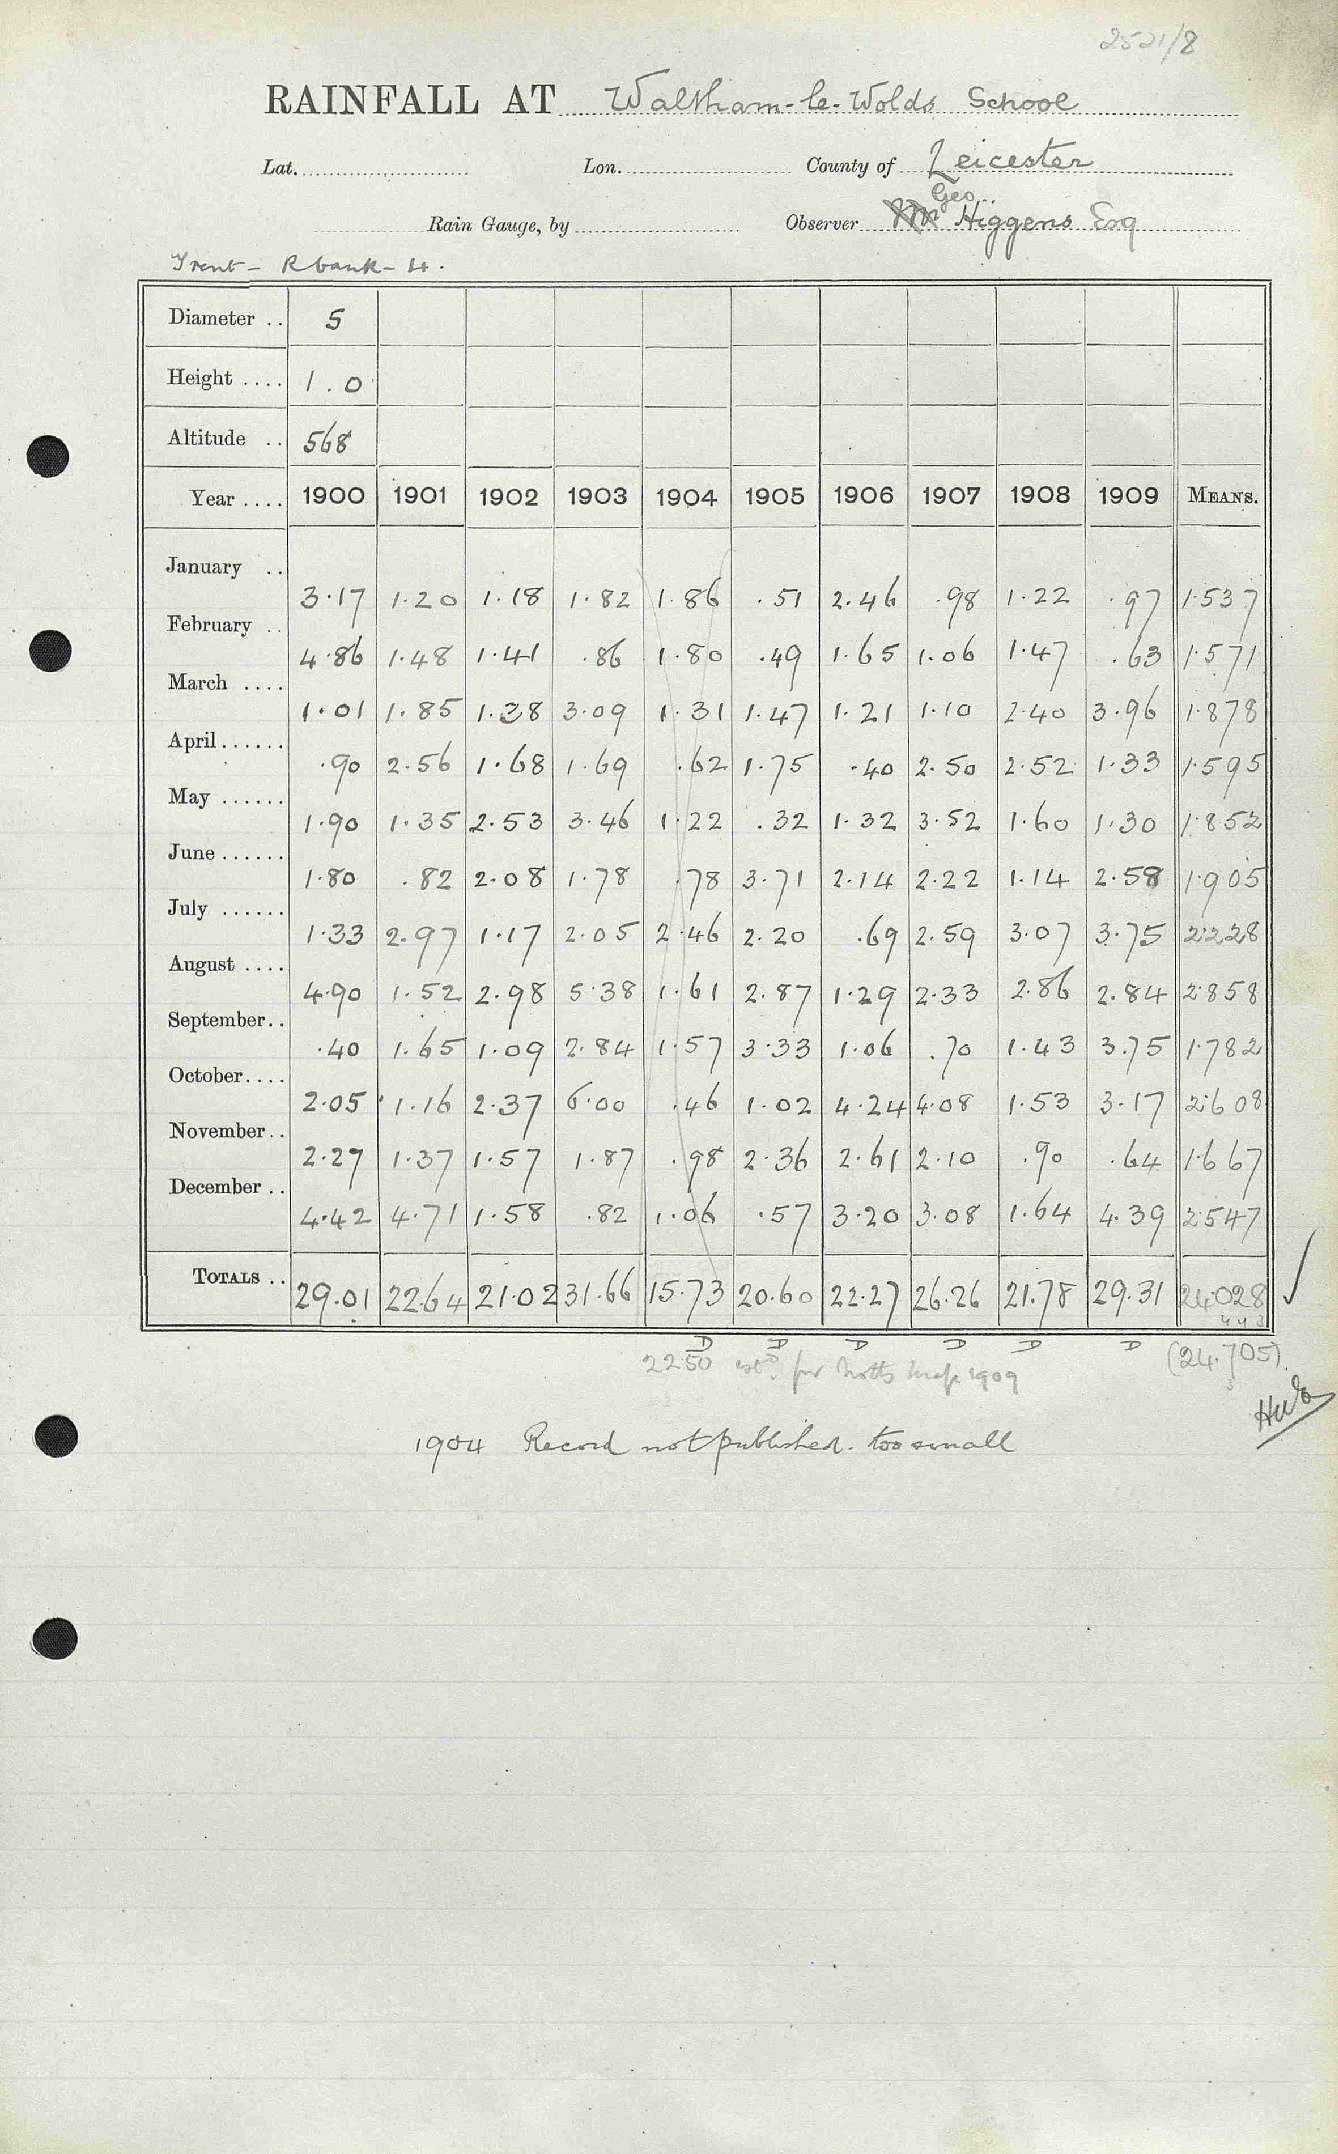 2521/8
RAINFALL AT Waltham-le-Wolds School
Lat. Lon. County of Leicester
Geo
Rain Gauge, by Observer Mr Higgens Esq
Trent - R bank - 4.
Diameter .. 5
Height .... 1.0
Altitude .. 568
Year .... 1900 1901 1902 1903 1904 1905 1906 1907 1908 1909 MEANS.
January .. 3.17 1.20 1.18 1.82 1.86 .51 2.46 .98 1.22 .97 1.537
February .. 4.86 1.48 1.41 .86 1.80 .49 1.65 1.06 1.47 .63 1.571
March .... 1.01 1.85 1.38 3.09 1.31 1.47 1.21 1.10 2.40 3.96 1.878
April ...... .90 2.56 1.68 1.69 .62 1.75 .40 2.50 2.52 1.33 1.595
May ...... 1.90 1.35 2.53 3.46 1.22 .32 1.32 3.52 1.60 1.30 1.852
June ...... 1.80 .82 2.08 1.78 .78 3.71 2.14 2.22 1.14 2.58 1.905
July ...... 1.33 2.97 1.17 2.05 2.46 2.20 .69 2.59 3.07 3.75 2.228
August .... 4.90 1.52 2.98 5.38 1.61 2.87 1.29 2.33 2.86 2.84 2.858
September .. .40 1.65 1.09 2.84 1.57 3.33 1.06 .70 1.43 3.75 1.782
October .... 2.05 1.16 2.37 6.00 .46 1.02 4.24 4.08 1.53 3.17 2.608
November .. 2.27 1.37 1.57 1.87 .98 2.36 2.61 2.10 .90 .64 1.667
December .. 4.42 4.71 1.58 .82 1.06 .57 3.20 3.08 1.64 4.39 2.547
TOTALS .. 29.01 22.64 21.02 31.66 15.73 20.60 22.27 26.26 21.78 29.31 24.028
D D D D D D (24.705)
22.50 estd. for Notts Map 1909
1904 Record not published. too small